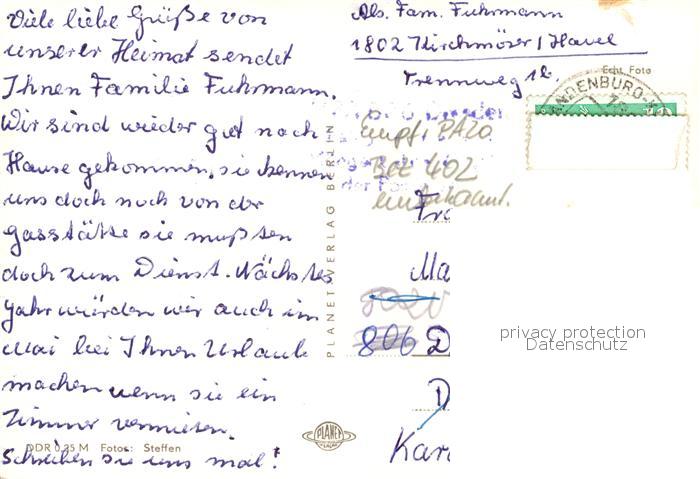 Viele liebe Grüße von
unserer Heimat sendet
Ihnen Familie Fuhrmann.
Wir sind wieder gut nach
Hause gekommen, sie kennen
uns doch noch von der
Gasstätte sie mußten
doch zum Dienst. Nächstes
Jahr würden wir auch im
Mai bei Ihnen Urlaub
machen wenn sie ein
Zimmer vermieten.
Schreiben sie uns mal!
DDR 0,25 M Fotos: Steffen
PLANET-VERLAG BERLIN
PLANET
Abs. Fam. Fuhrmann
1802 Kirchmöser/Havel
Trennweg 16.
Echt Foto
BRANDENBURG
Empf. PA20
Bez 402
unbekannt.
Fr
Ma
8020
806 D
D
Karl
privacy protection
Datenschutz